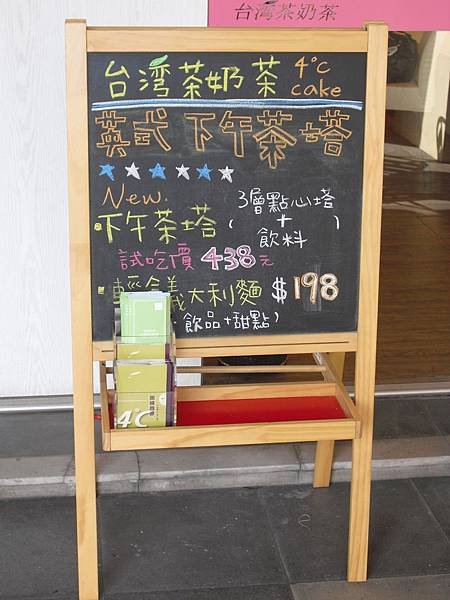 台湾茶奶茶
台湾茶奶茶 4°C
cake
英式下午茶塔
New.
下午茶塔 (3層點心塔
+
飲料)
試吃價 438元
輕食義大利麵 $198
飲品+甜點)
4°C